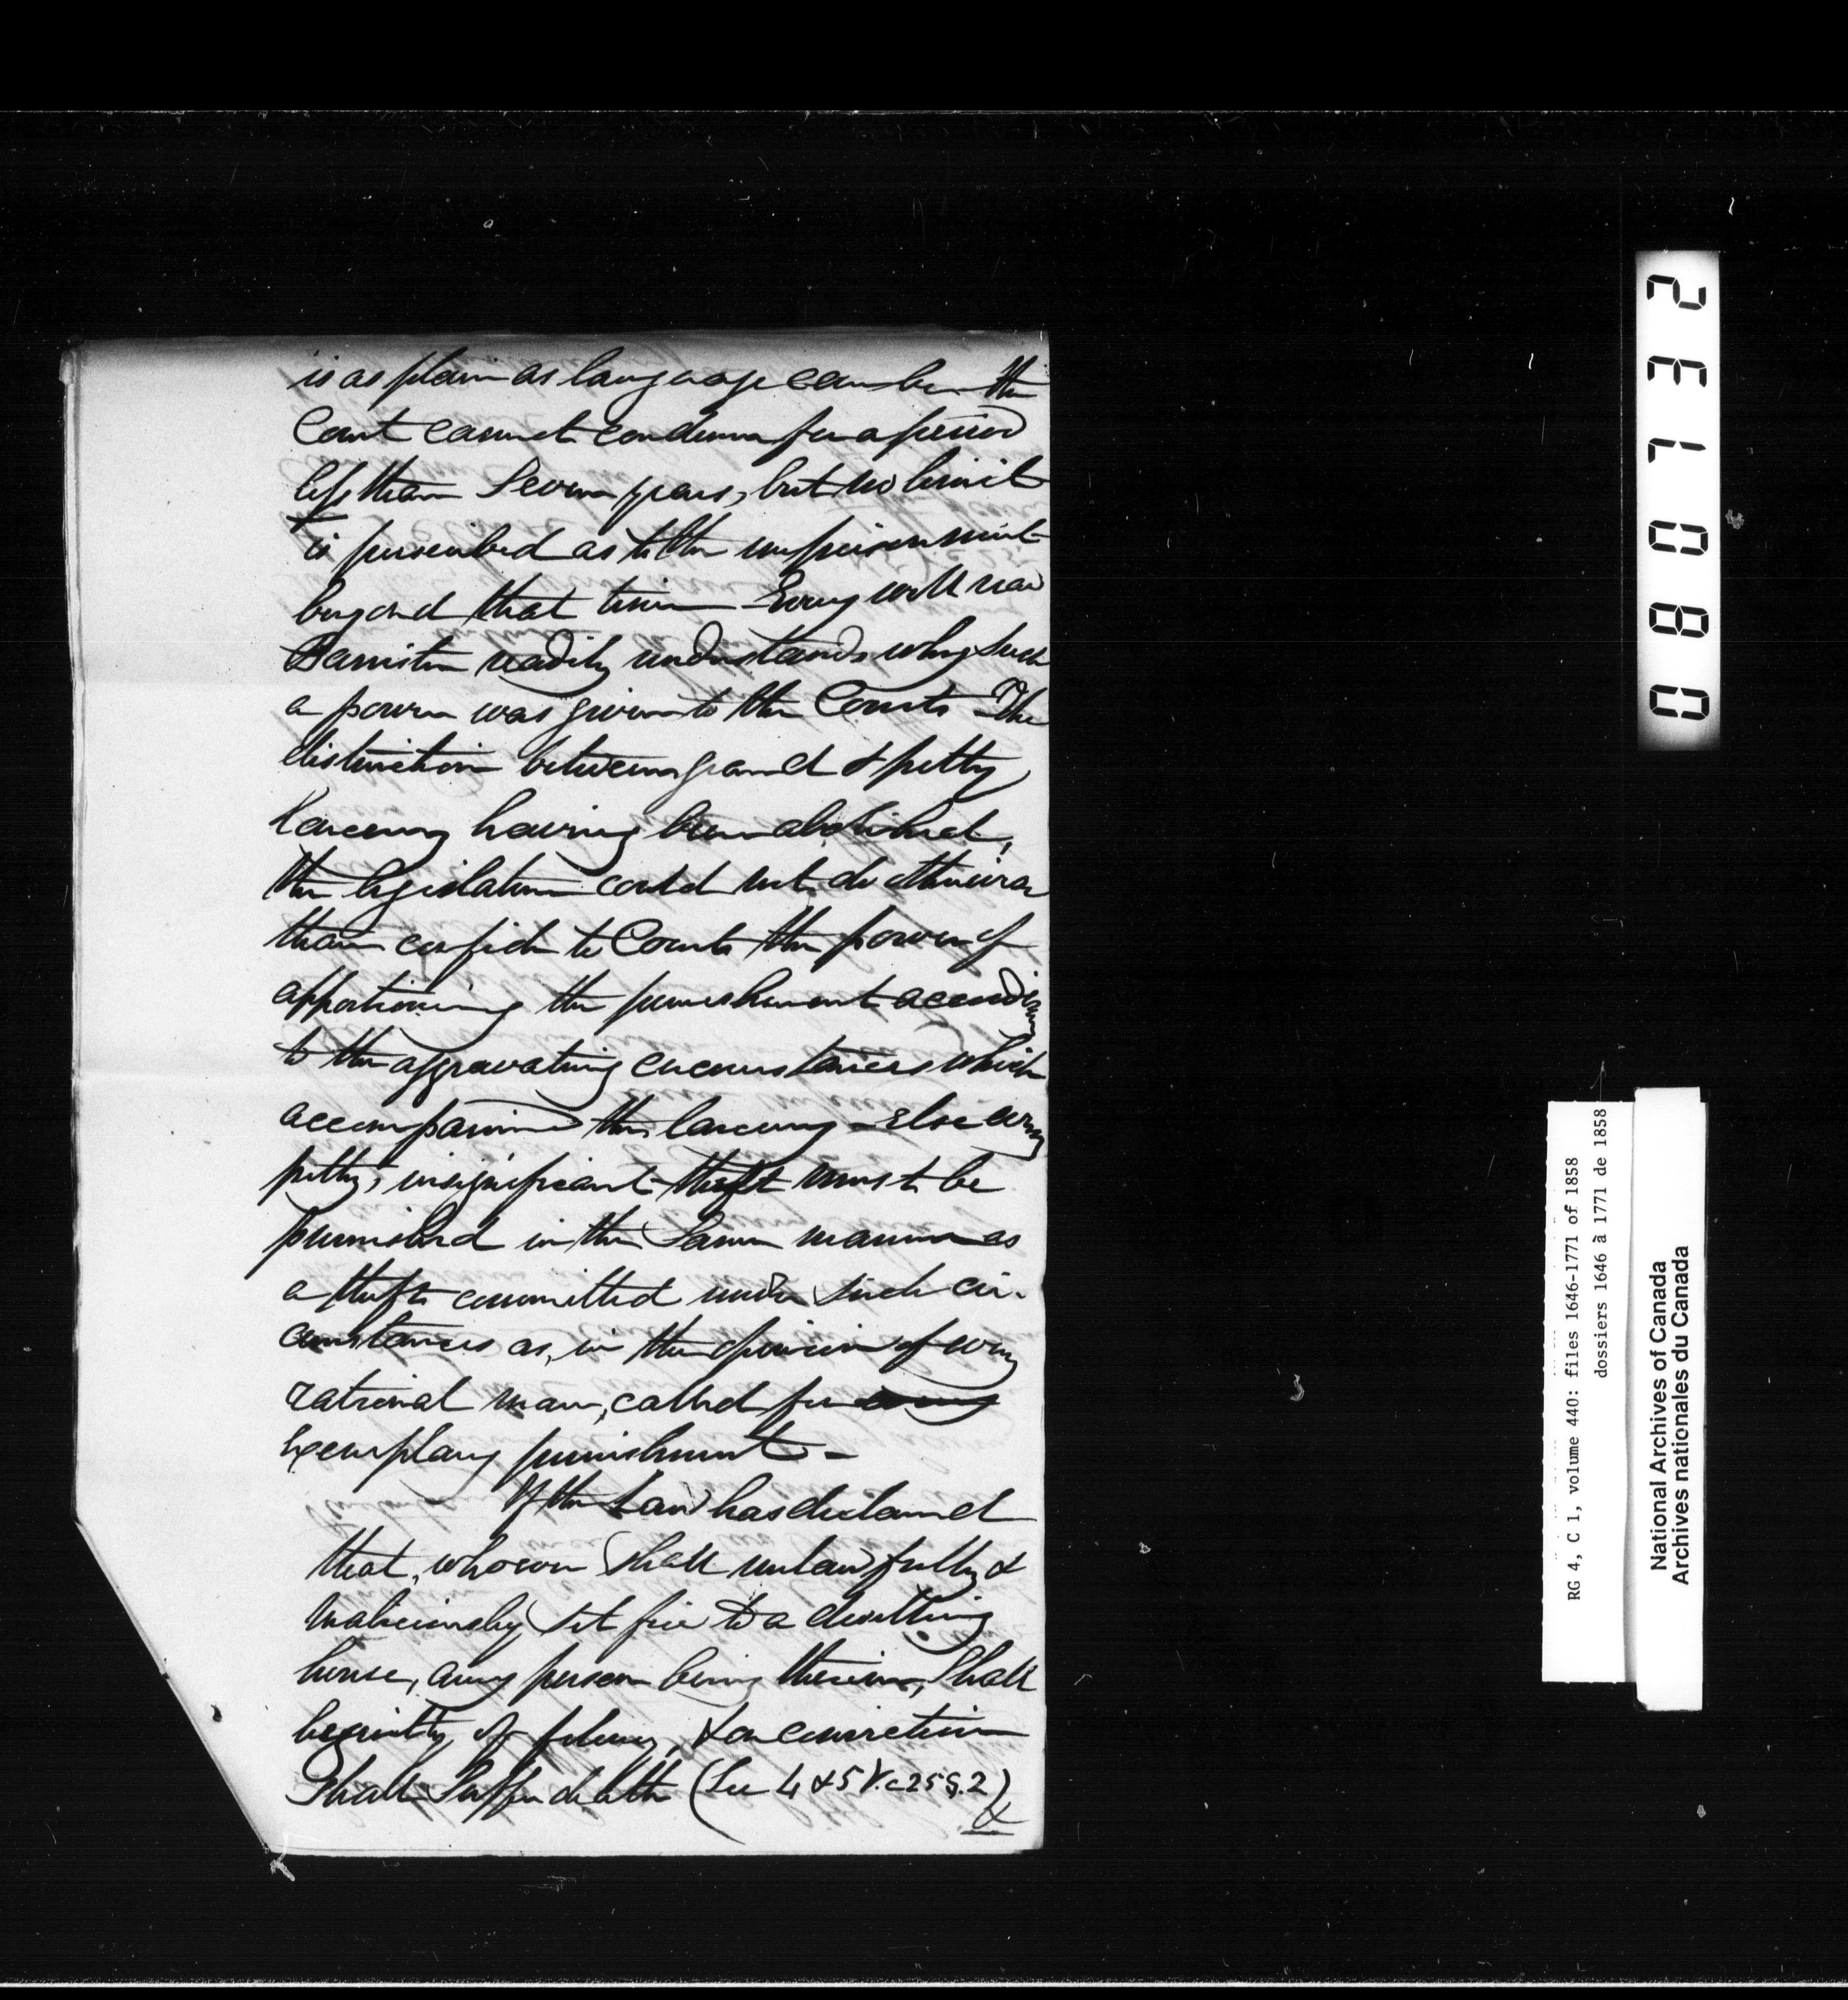 is as plain as language can be the
Court cannot condemn for a period
less than Seven years, but no limit
is prescribed as to the imprisonment
beyond that time — Every well read
Barrister readily understands why such
a power was given to the Courts — The
distinction between grand & petty
Larceny having been abolished,
the legislature could not do otherwise
than confide to Courts the power of
apportioning the punishment according
to the aggravating circumstances which
accompanied the larceny — else every
petty, insignificant theft must be
punished in the same manner as
a theft committed under such cir-
cumstances as, in the opinion of every
rational man, called for
exemplary punishment —
If the Law has declared
that, whoever shall unlawfully &
maliciously set fire to a dwelling
house, any person being therein, shall
be guilty of felony, & on conviction
Shall suffer death (See 4 & 5 V. c 25 S. 2)
&
080732
RG 4, C 1, volume 440: files 1646-1771 of 1858
dossiers 1646 à 1771 de 1858
National Archives of Canada
Archives nationales du Canada